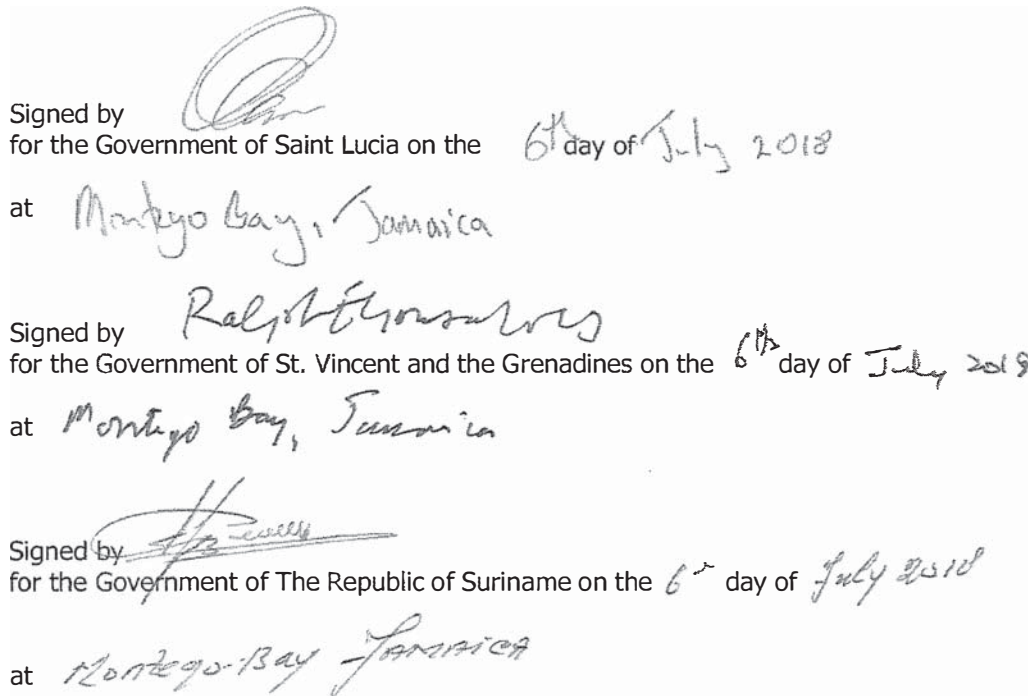 Signed by
for the Government of Saint Lucia on the 6th day of July 2018
at Montego Bay, Jamaica
Signed by Ralph E Gonsalves
for the Government of St. Vincent and the Grenadines on the 6th day of July 2018
at Montego Bay, Jamaica
Signed by
for the Government of The Republic of Suriname on the 6 day of July 2018
at Montego-Bay JAMAICA